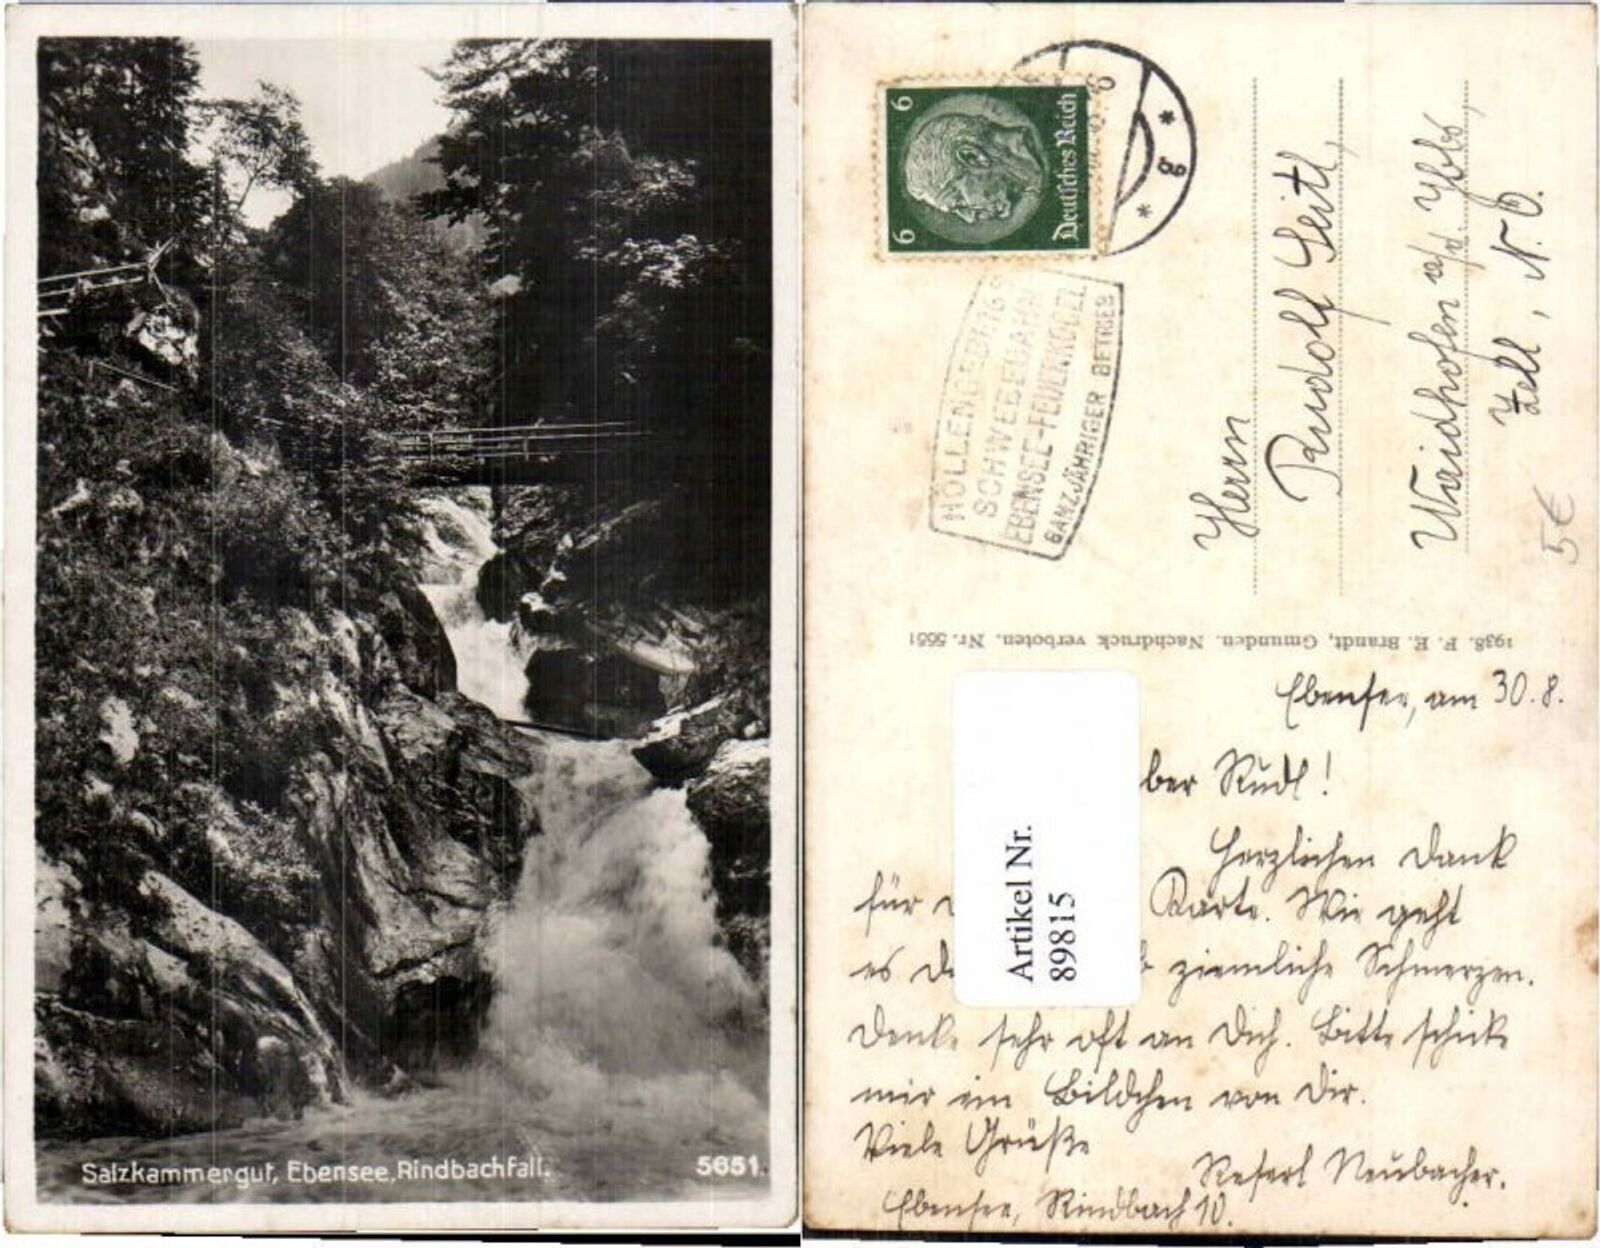 Salzkammergut, Ebensee, Rindbachfall.
5651.
6
6
Deutsches Reich
* g *
HÖLLENGEBIRGS
SCHWEBEBAHN
EBENSEE-FEUERKOGEL
GANZJÄHRIGER BETRIEB
Herrn
Rudolf Seitl,
Waidhofen a/d. Ybbs,
Zell, N.Ö.
5€
1938. P. E. Brandt, Gmunden. Nachdruck verboten. Nr. 5651
Artikel Nr.
89815
Ebensee, am 30. 8.
ber Rudl!
Herzlichen Dank
für Karte. Wie geht
es ziemliche Schmerzen.
Denke sehr oft an Dich. Bitte schicke
mir ein Bildchen von Dir.
Viele Grüße
Reserl Neubacher.
Ebensee, Rindbach 10.